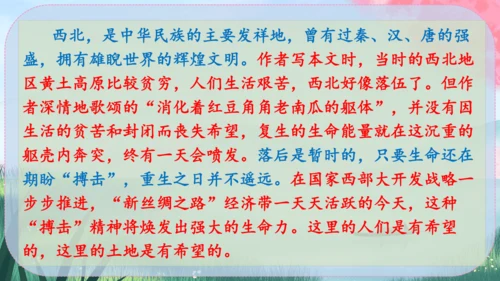 西北，是中华民族的主要发祥地，曾有过秦、汉、唐的强
盛，拥有雄睨世界的辉煌文明。作者写本文时，当时的西北地
区黄土高原比较贫穷，人们生活艰苦，西北好像落伍了。但作
者深情地歌颂的“消化着红豆角角老南瓜的躯体”，并没有因
生活的贫苦和封闭而丧失希望，复生的生命能量就在这沉重的
躯壳内奔突，终有一天会喷发。落后是暂时的，只要生命还在
期盼“搏击”，重生之日并不遥远。在国家西部大开发战略一
步步推进，“新丝绸之路”经济带一天天活跃的今天，这种
“搏击”精神将焕发出强大的生命力。这里的人们是有希望
的，这里的土地是有希望的。